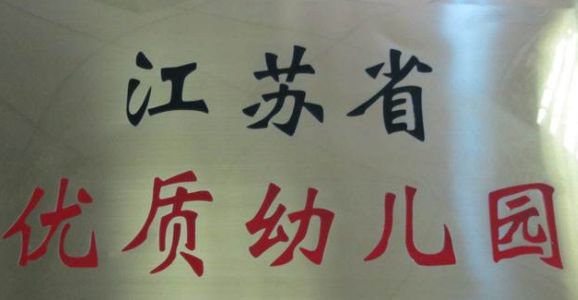 江苏省
优质幼儿园